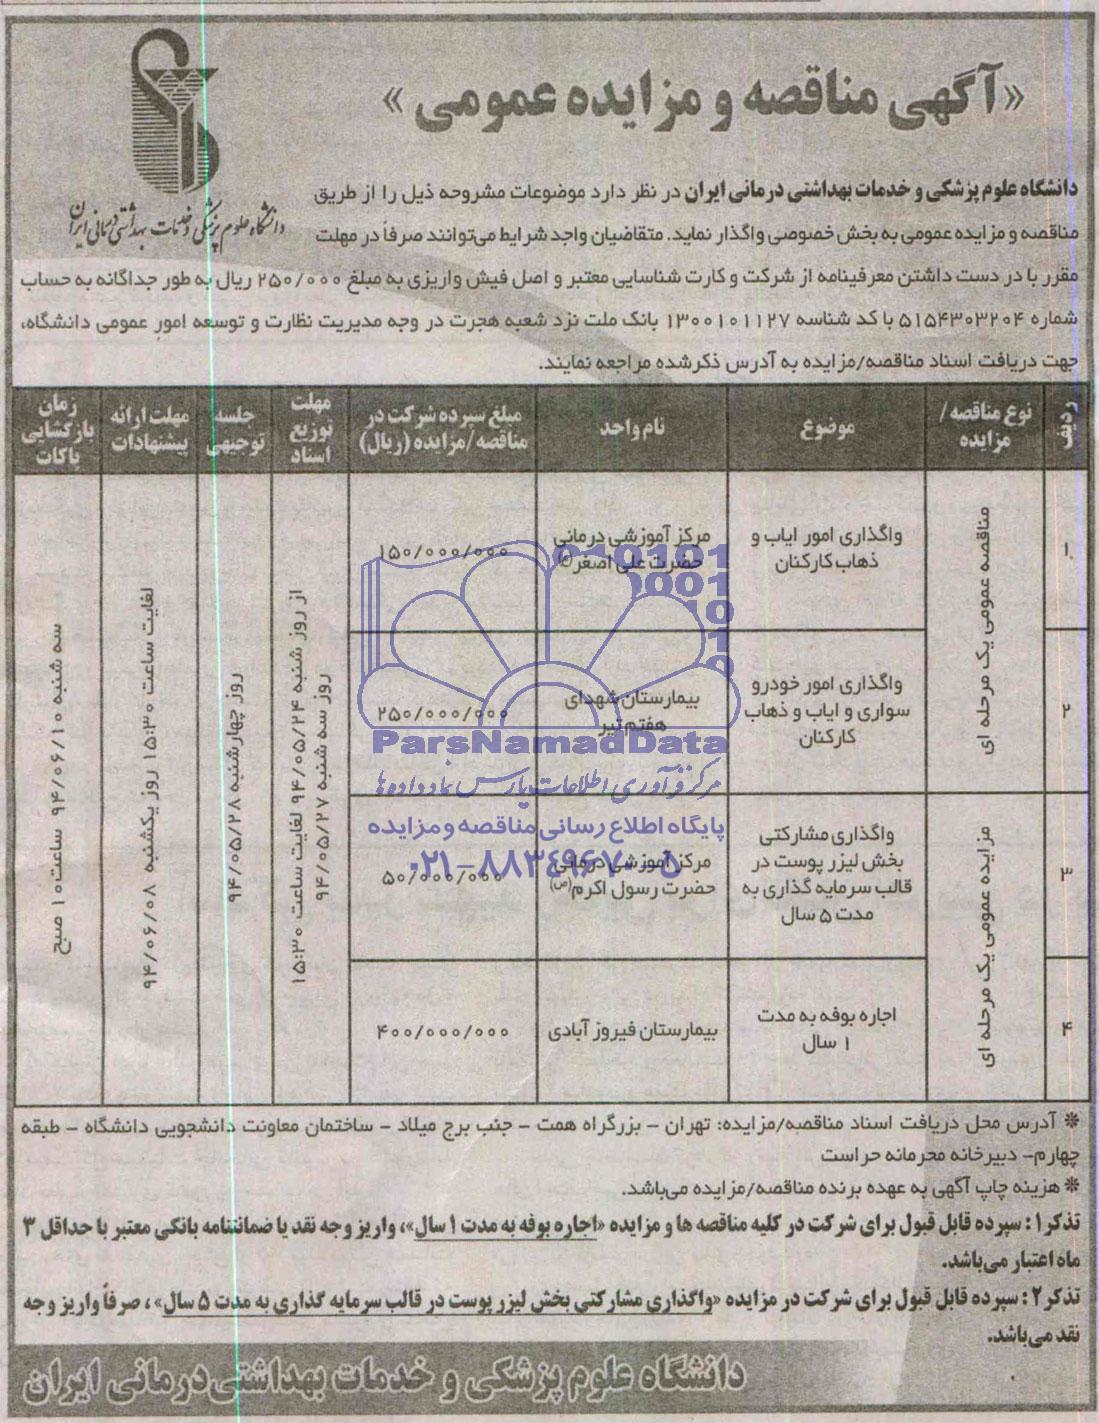 «آگهی مناقصه و مزایده عمومی»
دانشگاه علوم پزشکی و خدمات بهداشتی درمانی ایران
دانشگاه علوم پزشکی و خدمات بهداشتی درمانی ایران در نظر دارد موضوعات مشروحه ذیل را از طریق
مناقصه و مزایده عمومی به بخش خصوصی واگذار نماید. متقاضیان واجد شرایط می‌توانند صرفاً در مهلت
مقرر با در دست داشتن معرفینامه از شرکت و کارت شناسایی معتبر و اصل فیش واریزی به مبلغ ۲۵۰/۰۰۰ ریال به طور جداگانه به حساب
شماره ۵۱۵۴۳۰۳۲۰۴ با کد شناسه ۱۳۰۰۱۰۱۱۲۷ بانک ملت نزد شعبه هجرت در وجه مدیریت نظارت و توسعه امور عمومی دانشگاه،
جهت دریافت اسناد مناقصه/مزایده به آدرس ذکرشده مراجعه نمایند.
ردیف
نوع مناقصه/
مزایده
موضوع
نام واحد
مبلغ سپرده شرکت در
مناقصه/مزایده (ریال)
مهلت
توزیع
اسناد
جلسه
توجیهی
مهلت ارائه
پیشنهادات
زمان
بازگشایی
پاکات
۱
مناقصه عمومی یک مرحله ای
واگذاری امور ایاب و
ذهاب کارکنان
مرکز آموزشی درمانی
حضرت علی اصغر(ع)
۱۵۰/۰۰۰/۰۰۰
از روز شنبه ۹۴/۰۵/۲۴ لغایت ساعت ۱۵:۳۰
روز سه شنبه ۹۴/۰۵/۲۷
روز چهارشنبه ۹۴/۰۵/۲۸
لغایت ساعت ۱۵:۳۰ روز یکشنبه ۹۴/۰۶/۰۸
سه شنبه ۹۴/۰۶/۱۰ ساعت ۱۰ صبح
۲
واگذاری امور خودرو
سواری و ایاب و ذهاب
کارکنان
بیمارستان شهدای
هفتم تیر
۲۵۰/۰۰۰/۰۰۰
۳
مزایده عمومی یک مرحله ای
واگذاری مشارکتی
بخش لیزر پوست در
قالب سرمایه گذاری به
مدت ۵ سال
مرکز آموزشی درمانی
حضرت رسول اکرم(ص)
۵۰/۰۰۰/۰۰۰
۴
اجاره بوفه به مدت
۱ سال
بیمارستان فیروز آبادی
۴۰۰/۰۰۰/۰۰۰
ParsNamadData
مرکز فرآوری اطلاعات پارس نماد داده ها
پایگاه اطلاع رسانی مناقصه و مزایده
۰۲۱-۸۸۳۴۹۶۷۰-۵
* آدرس محل دریافت اسناد مناقصه/مزایده: تهران - بزرگراه همت - جنب برج میلاد - ساختمان معاونت دانشجویی دانشگاه - طبقه
چهارم- دبیرخانه محرمانه حراست
* هزینه چاپ آگهی به عهده برنده مناقصه/مزایده می‌باشد.
تذکر۱: سپرده قابل قبول برای شرکت در کلیه مناقصه ها و مزایده «اجاره بوفه به مدت ۱ سال»، واریز وجه نقد یا ضمانتنامه بانکی معتبر با حداقل ۳
ماه اعتبار می‌باشد.
تذکر۲: سپرده قابل قبول برای شرکت در مزایده «واگذاری مشارکتی بخش لیزر پوست در قالب سرمایه گذاری به مدت ۵ سال»، صرفاً واریز وجه
نقد می‌باشد.
دانشگاه علوم پزشکی و خدمات بهداشتی درمانی ایران